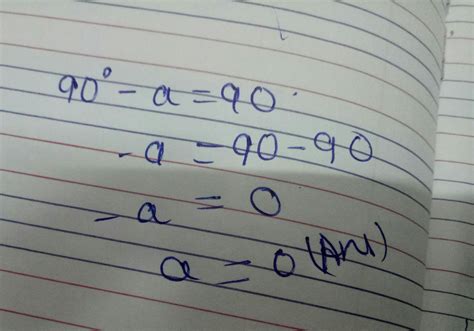 90° - a = 90.
-a = 90 - 90
- a = 0
a = 0 (Ans)